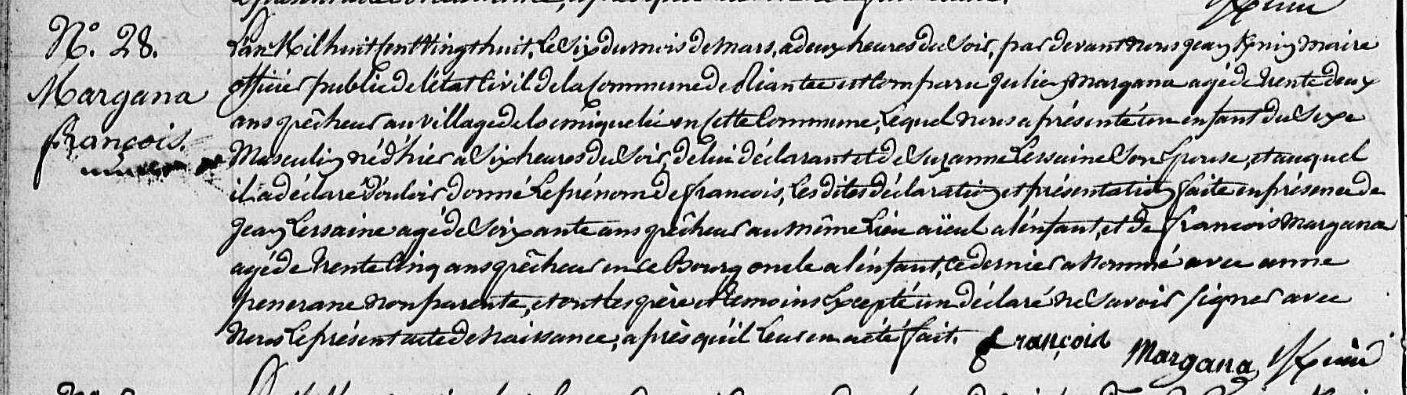 N.° 28.
Margana
françois.
L'an Mil huit cent vingt huit, le six du mois de Mars, à deux heures du soir, par devant nous jean maire
officier public de l'état Civil de la Commune de est Comparu julien Margana agé de trente deux
ans pêcheur au village de en cette Commune, lequel nous a présenté un enfant du sexe
Masculin né d'hier à six heures du soir, de lui déclarant et de Suzanne Lessaine son Epouse, et auquel
il a déclaré vouloir donné le prénom de françois, les dites déclaration et présentation faite en présence de
jean Lessaine agé de soixante ans pêcheur au même Lieu aïeul a l'enfant, et de françois Margana
agé de trente cinq ans pêcheur en ce Bourg oncle a l'enfant, ce dernier a Nommé avec anne
penerane non parente, et ont les père et témoins Excepté un déclaré ne savoir signer avec
Nous le présent acte de Naissance, après qu'il leur en a été fait. françois
Margana